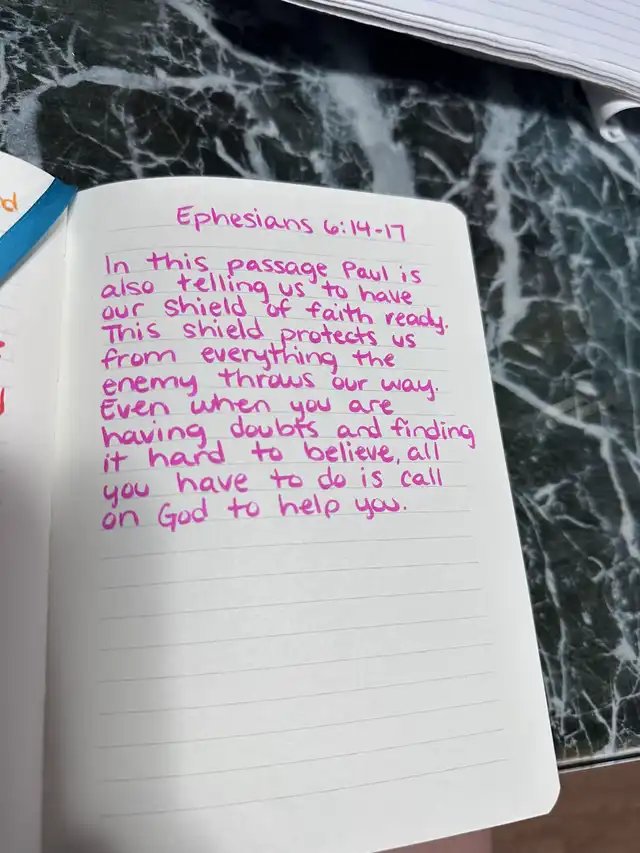 Ephesians 6:14-17
In this passage Paul is
also telling us to have
our shield of faith ready.
This shield protects us
from everything the
enemy throws our way.
Even when you are
having doubts and finding
it hard to believe, all
you have to do is call
on God to help you.